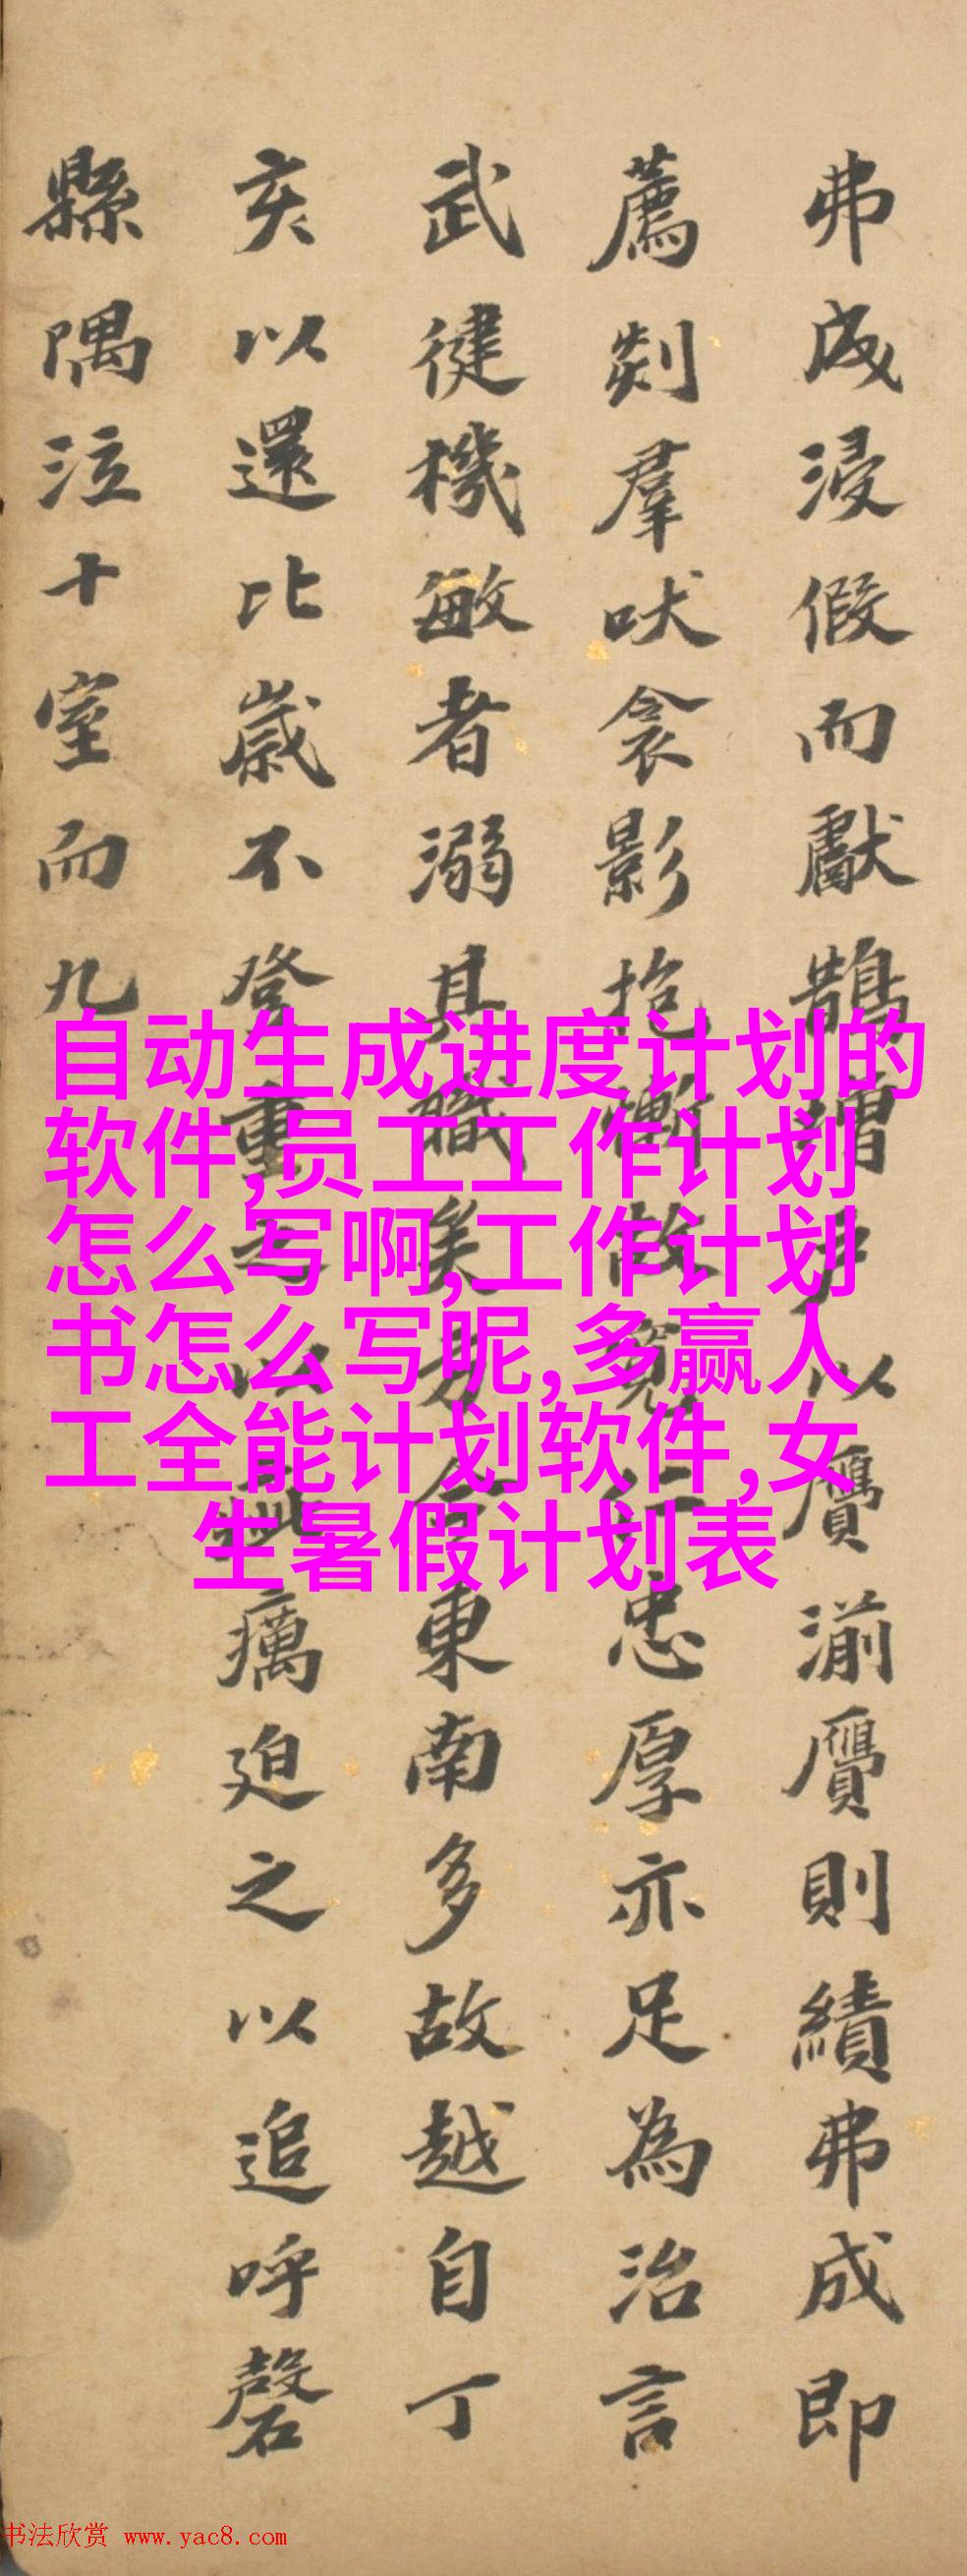 弗成浸假而獻鵲
以贗湔贗則績弗成即
薦剡羣吠衾影抱慚故寬仁忠厚亦足為治言
武健機敏者溺其職矣方今東南多故越自丁
亥以還比歲不登重之以疵癘迫之以追呼罄
縣隅泣十室而九
自动生成进度计划的
软件,员工工作计划
怎么写啊,工作计划
书怎么写呢,多赢人
工全能计划软件,女
生暑假计划表
书法欣赏 www.yac8.com